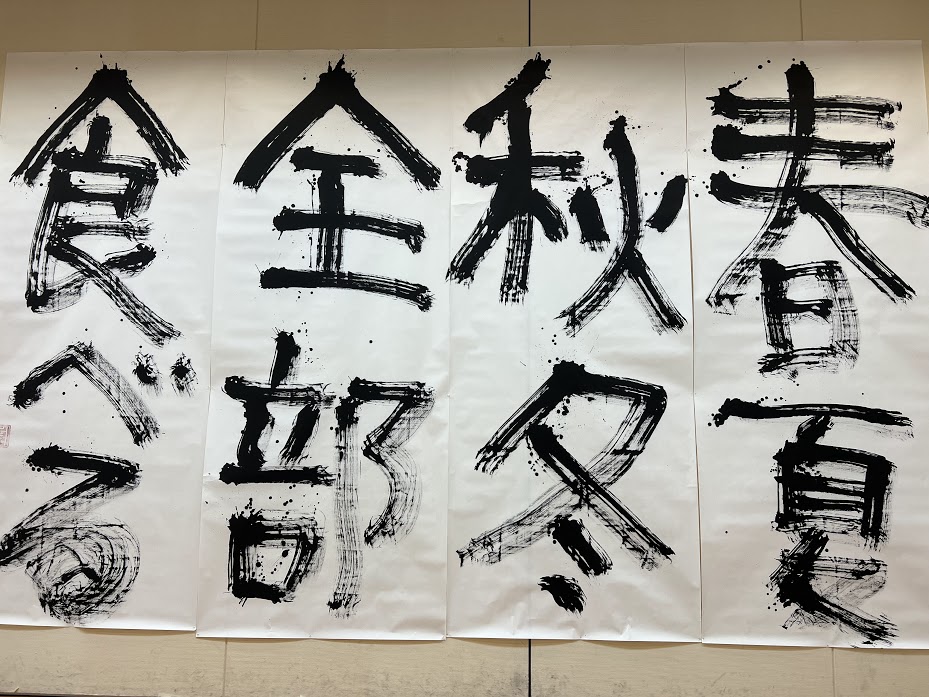 春夏
秋冬
全部
食べる